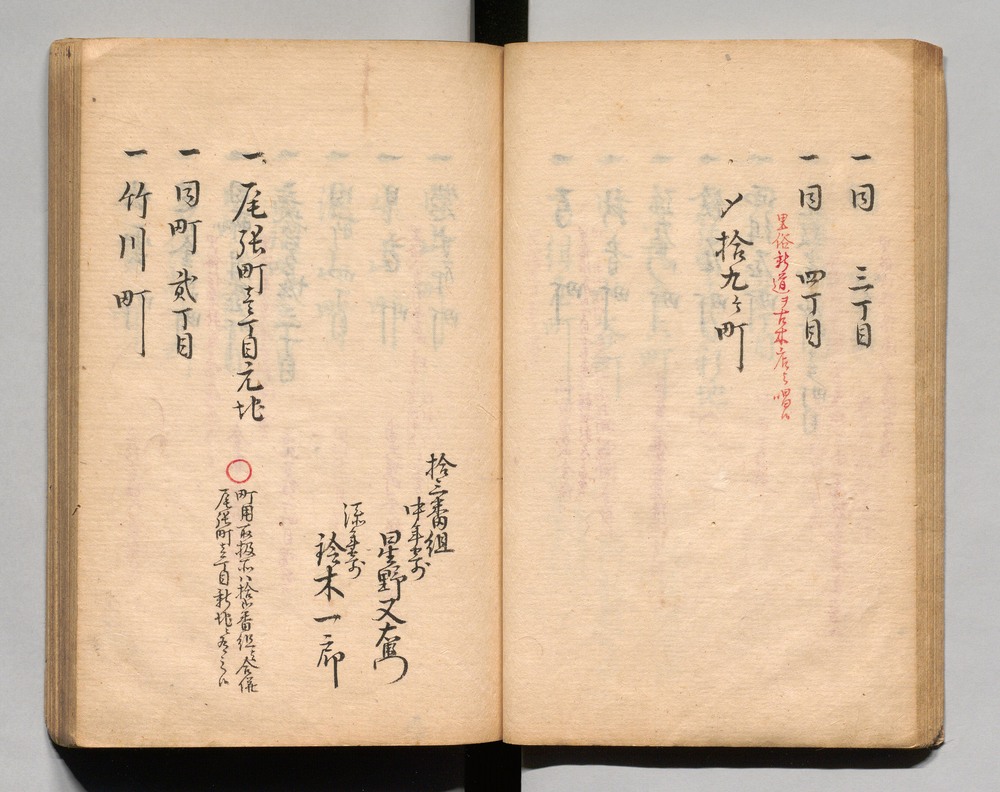 一 同 三丁目
一 同 四丁目
里俗新道ヲ古木店と唱候
〆拾九ヶ町
拾三番組
中年寄
星野又右衛門
添年寄
鈴木一郎
一 尾張町壱丁目元地
町用取扱所ハ拾四番組と合併
尾張町壱丁目新地ニ有之候
一 同町 貳丁目
一 竹川町